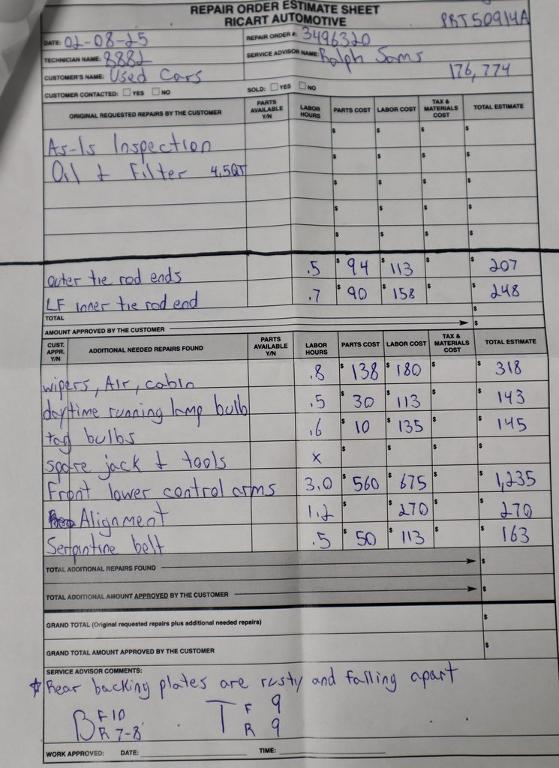 REPAIR ORDER ESTIMATE SHEET
RICART AUTOMOTIVE
PRT50914A
DATE: 02-08-25 REPAIR ORDER #: 3496320
TECHNICIAN NAME: 8882 SERVICE ADVISOR NAME: Ralph Sams
CUSTOMER'S NAME: Used Cars 176,774
CUSTOMER CONTACTED: YES NO SOLD: YES NO
ORIGINAL REQUESTED REPAIRS BY THE CUSTOMER PARTS AVAILABLE Y/N LABOR HOURS PARTS COST LABOR COST TAX & MATERIALS COST TOTAL ESTIMATE
As-Is Inspection $ $ $ $
Oil & Filter 4.5QT $ $ $ $
$ $ $ $
$ $ $ $
$ $ $ $
outer tie rod ends .5 $ 94 $ 113 $ $ 207
LF inner tie rod end .7 $ 90 $ 158 $ $ 248
TOTAL $
AMOUNT APPROVED BY THE CUSTOMER $
CUST. APPR. Y/N ADDITIONAL NEEDED REPAIRS FOUND PARTS AVAILABLE Y/N LABOR HOURS PARTS COST LABOR COST TAX & MATERIALS COST TOTAL ESTIMATE
wipers, Air, cabin .8 $ 138 $ 180 $ $ 318
daytime running lamp bulb .5 $ 30 $ 113 $ $ 143
tag bulbs .6 $ 10 $ 135 $ $ 145
spare jack & tools x $ $ $ $
Front lower control arms 3.0 $ 560 $ 675 $ $ 1,235
Alignment 1.2 $ $ 270 $ $ 270
Serpintine belt .5 $ 50 $ 113 $ $ 163
TOTAL ADDITIONAL REPAIRS FOUND $
TOTAL ADDITIONAL AMOUNT APPROVED BY THE CUSTOMER $
GRAND TOTAL (Original requested repairs plus additional needed repairs) $
GRAND TOTAL AMOUNT APPROVED BY THE CUSTOMER $
SERVICE ADVISOR COMMENTS:
* Rear backing plates are rusty and falling apart
B F 10 T F 9
R 7-8 R 9
WORK APPROVED: DATE: TIME: